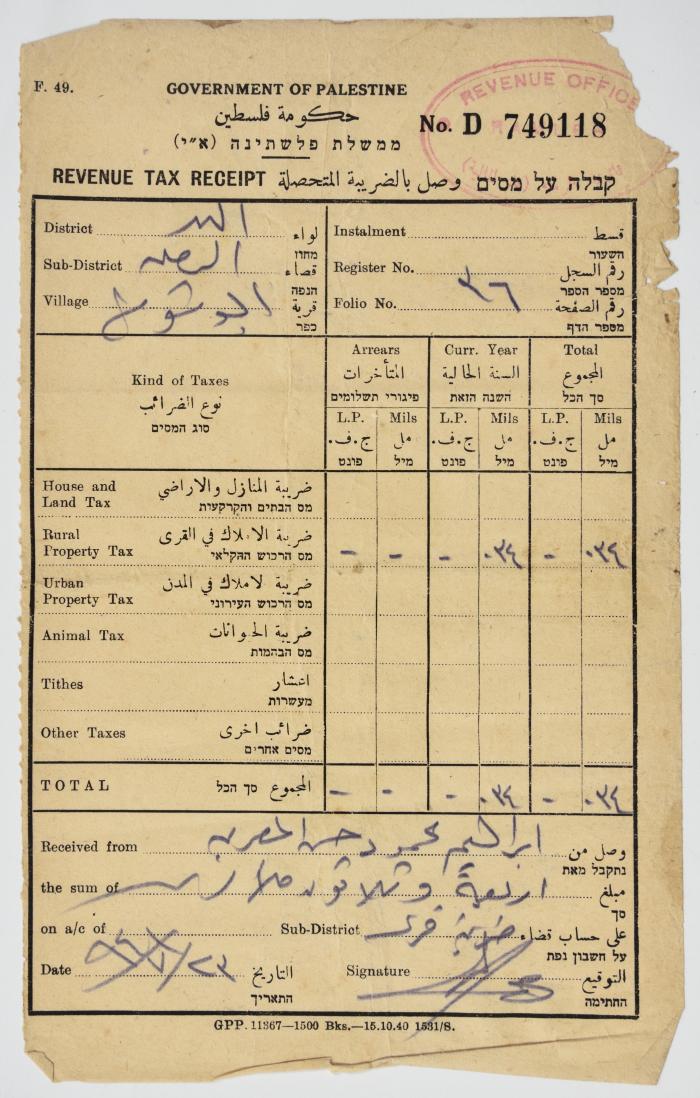 F. 49.
GOVERNMENT OF PALESTINE
حكومة فلسطين
ממשלת פלשתינה (א״י)
No. D 749118
REVENUE OFFICE
REVENUE TAX RECEIPT وصل بالضريبة المتحصلة קבלה על מסים
District اللد لواء מחוז
Sub-District قضاء הנפה
Village قرية כפר
Instalment قسط השעור
Register No. رقم السجل מספר הספר
Folio No. ٣٦ رقم الصفحة מספר הדף
Kind of Taxes
نوع الضرائب
סוג המסים
Arrears Curr. Year Total
المتأخرات السنة الحالية المجموع
פיגורי תשלומים השנה הזאת סך הכל
L.P. Mils L.P. Mils L.P. Mils
ج.ف. مل ج.ف. مل ج.ف. مل
פונט מיל פונט מיל פונט מיל
House and Land Tax ضريبة المنازل والاراضي מס הבתים והקרקעות
Rural Property Tax ضريبة الاملاك في القرى מס הרכוש החקלאי - - - ٠٣٤ - ٠٣٤
Urban Property Tax ضريبة لاملاك في المدن מס הרכוש העירוני
Animal Tax ضريبة الحيوانات מס הבהמות
Tithes اعشار מעשרות
Other Taxes ضرائب اخرى מסים אחרים
TOTAL المجموع סך הכל - - - ٠٣٤ - ٠٣٤
Received from ابراهيم محمود حسن وصل من נתקבל מאת
the sum of اربعة وثلاثون ملا مبلغ סך
on a/c of Sub-District على حساب قضاء על חשבון נפת
Date التاريخ התאריך Signature التوقيع החתימה
GPP. 11367—1500 Bks.—15.10.40 1531/8.